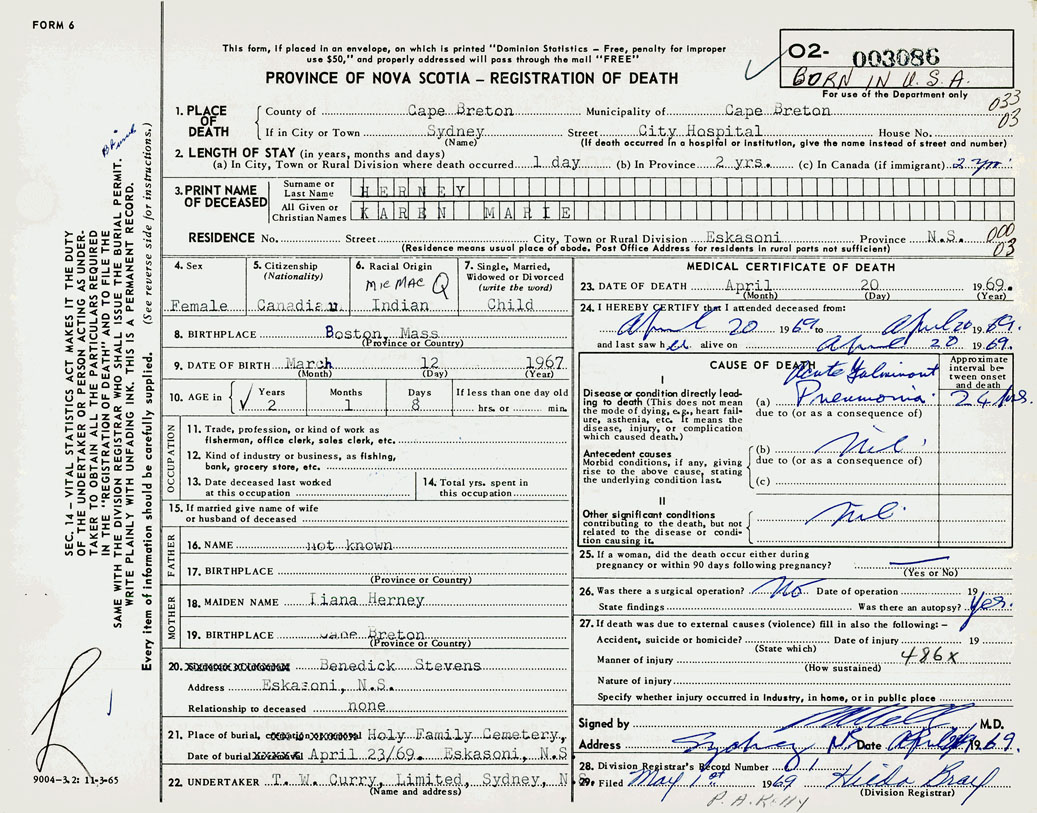 FORM 6
This form, if placed in an envelope, on which is printed "Dominion Statistics – Free, penalty for improper
use $50," and properly addressed will pass through the mail "FREE"
PROVINCE OF NOVA SCOTIA – REGISTRATION OF DEATH
02- 003086
BORN IN U.S.A.
For use of the Department only
033
03
1. PLACE OF DEATH
County of Cape Breton Municipality of Cape Breton
If in City or Town Sydney Street City Hospital House No.
(Name) (If death occurred in a hospital or institution, give the name instead of street and number)
2. LENGTH OF STAY (in years, months and days)
(a) In City, Town or Rural Division where death occurred 1 day (b) In Province 2 yrs. (c) In Canada (if immigrant) 2 yrs.
3. PRINT NAME OF DECEASED
Surname or Last Name HERNEY
All Given or Christian Names KAREN MARIE
RESIDENCE No. Street City, Town or Rural Division Eskasoni Province N.S.
000
03
(Residence means usual place of abode. Post Office Address for residents in rural parts not sufficient)
4. Sex
Female
5. Citizenship (Nationality)
Canadian
6. Racial Origin
MIC MAC Q
Indian
7. Single, Married, Widowed or Divorced (write the word)
Child
8. BIRTHPLACE Boston, Mass
(Province or Country)
9. DATE OF BIRTH March 12 1967
(Month) (Day) (Year)
10. AGE in Years Months Days If less than one day old
√ 2 1 8 hrs. or min.
OCCUPATION
11. Trade, profession, or kind of work as
fisherman, office clerk, sales clerk, etc.
12. Kind of industry or business, as fishing,
bank, grocery store, etc.
13. Date deceased last worked at this occupation
14. Total yrs. spent in this occupation
15. If married give name of wife
or husband of deceased
FATHER
16. NAME not known
17. BIRTHPLACE
(Province or Country)
MOTHER
18. MAIDEN NAME Liana Herney
19. BIRTHPLACE Cape Breton
(Province or Country)
20. Benedick Stevens
Address Eskasoni, N.S.
Relationship to deceased none
21. Place of burial, Holy Family Cemetery,
Date of burial April 23/69. Eskasoni, N.S.
22. UNDERTAKER T. W. Curry, Limited, Sydney, N.S.
(Name and address)
MEDICAL CERTIFICATE OF DEATH
23. DATE OF DEATH April 20 1969.
(Month) (Day) (Year)
24. I HEREBY CERTIFY that I attended deceased from:
April 20 1969 to April 20 1969.
and last saw her alive on April 20 1969.
CAUSE OF DEATH
Approximate interval between onset and death
I
Disease or condition directly leading to death (This does not mean the mode of dying, e.g., heart failure, asthenia, etc. It means the disease, injury, or complication which caused death.)
Acute Fulminant
(a) Pneumonia 24 hrs.
due to (or as a consequence of)
Antecedent causes
Morbid conditions, if any, giving rise to the above cause, stating the underlying condition last.
(b) Nil
due to (or as a consequence of)
(c)
II
Other significant conditions
contributing to the death, but not related to the disease or condition causing it.
Nil
25. If a woman, did the death occur either during
pregnancy or within 90 days following pregnancy? —
(Yes or No)
26. Was there a surgical operation? No Date of operation 19
State findings Was there an autopsy? Yes.
27. If death was due to external causes (violence) fill in also the following: –
Accident, suicide or homicide? Date of injury 19
(State which)
Manner of injury 486X
(How sustained)
Nature of injury
Specify whether injury occurred in industry, in home, or in public place
Signed by M.D.
Address Sydney N.S. Date April 1969.
28. Division Registrar's Record Number
29. Filed May 1st 1969 Hilda Bray
(Division Registrar)
P. A. Kelly
SEC. 14 – VITAL STATISTICS ACT MAKES IT THE DUTY
OF THE UNDERTAKER OR PERSON ACTING AS UNDER-
TAKER TO OBTAIN ALL THE PARTICULARS REQUIRED
IN THE "REGISTRATION OF DEATH" AND TO FILE THE
SAME WITH THE DIVISION REGISTRAR WHO SHALL ISSUE THE BURIAL PERMIT.
WRITE PLAINLY WITH UNFADING INK. THIS IS A PERMANENT RECORD.
Every item of information should be carefully supplied. (See reverse side for instructions.)
9004-3.2: 11-3-65